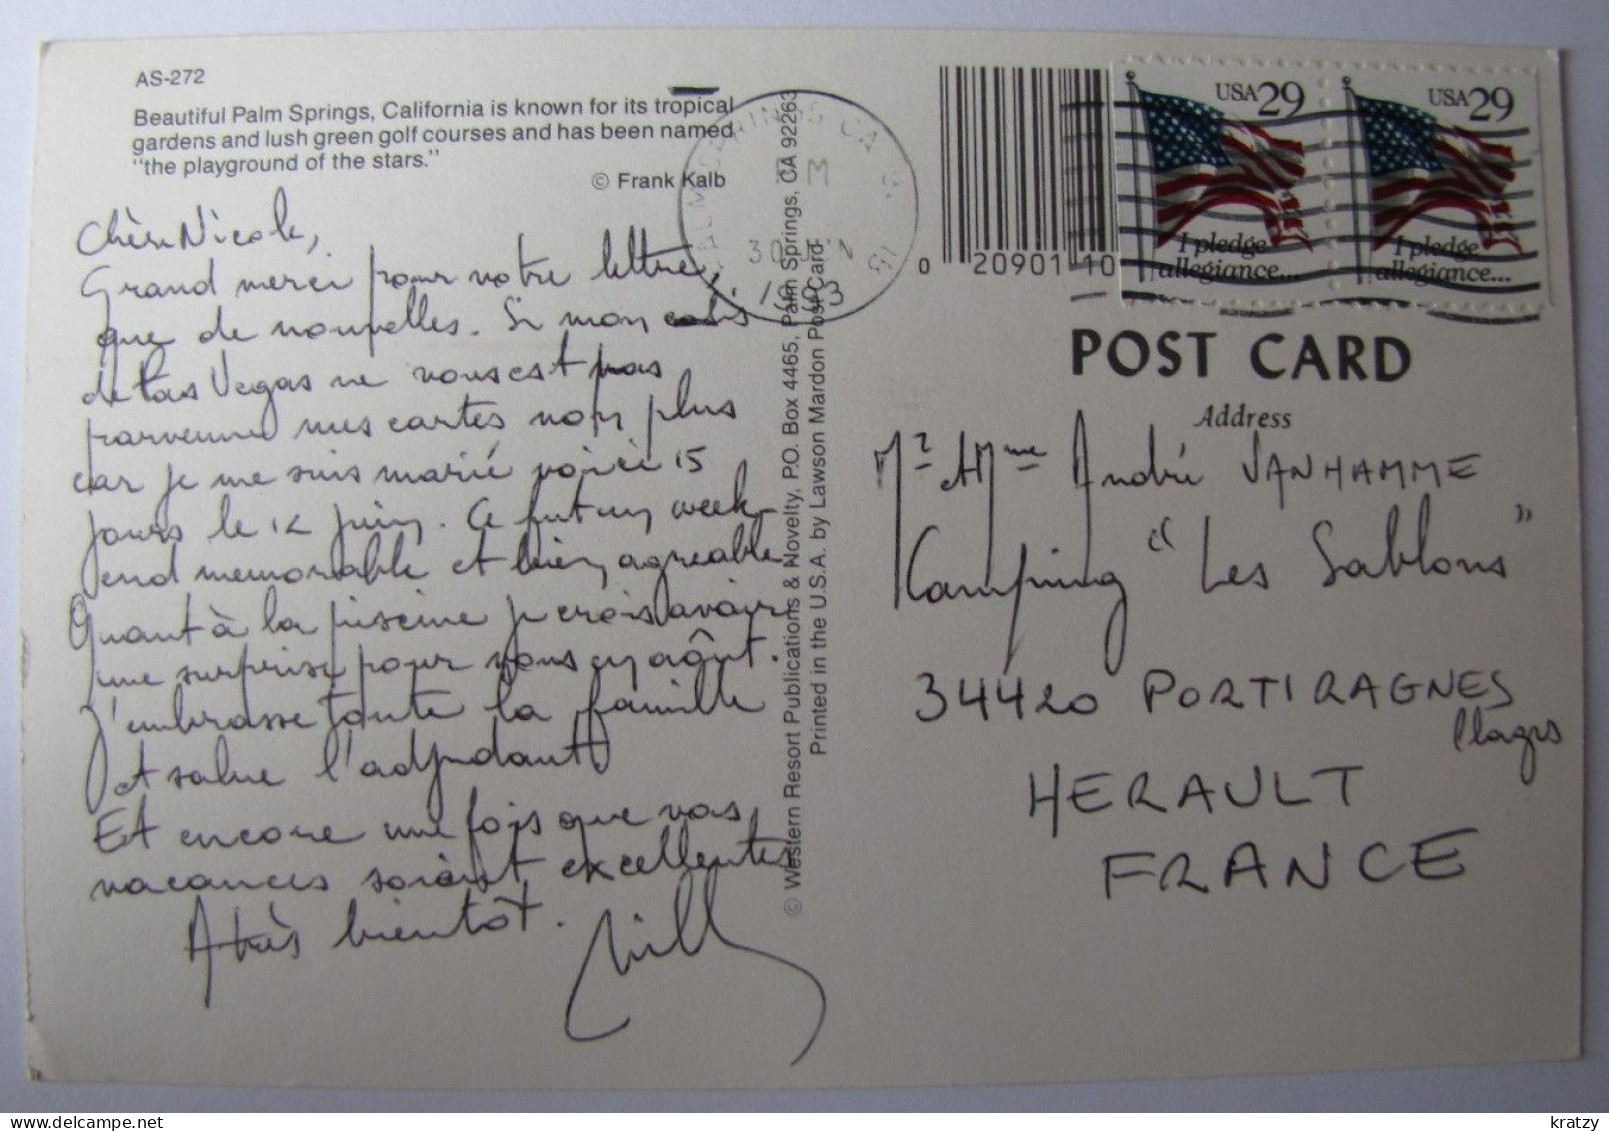 AS-272
Beautiful Palm Springs, California is known for its tropical
gardens and lush green golf courses and has been named
"the playground of the stars."
© Frank Kalb
Chère Nicole,
Grand merci pour votre lettre,
que de nouvelles. Si mon colis
de Las Vegas ne vous est pas
parvenu mes cartes non plus
car je me suis marié voici 15
jours le 12 juin. Ce fut un week-
end memorable et bien agreable
Quant à la piscine je crois avoir
une surprise pour vous en août.
J'embrasse toute la famille
et salue l'adjudant
Et encore une fois que vos
vacances soient excellentes
A très bientôt.
© Western Resort Publications & Novelty, P.O. Box 4465, Palm Springs, CA 92263
Printed in the U.S.A. by Lawson Mardon Post Card
SPRINGS CA
30 JUN
1993
0 20901 110
USA 29
I pledge
allegiance...
USA 29
I pledge
allegiance...
POST CARD
Address
Mr et Mme André VANHAMME
Kamping "Les Sablons"
34420 PORTIRAGNES
Plages
HERAULT
FRANCE
kratzy